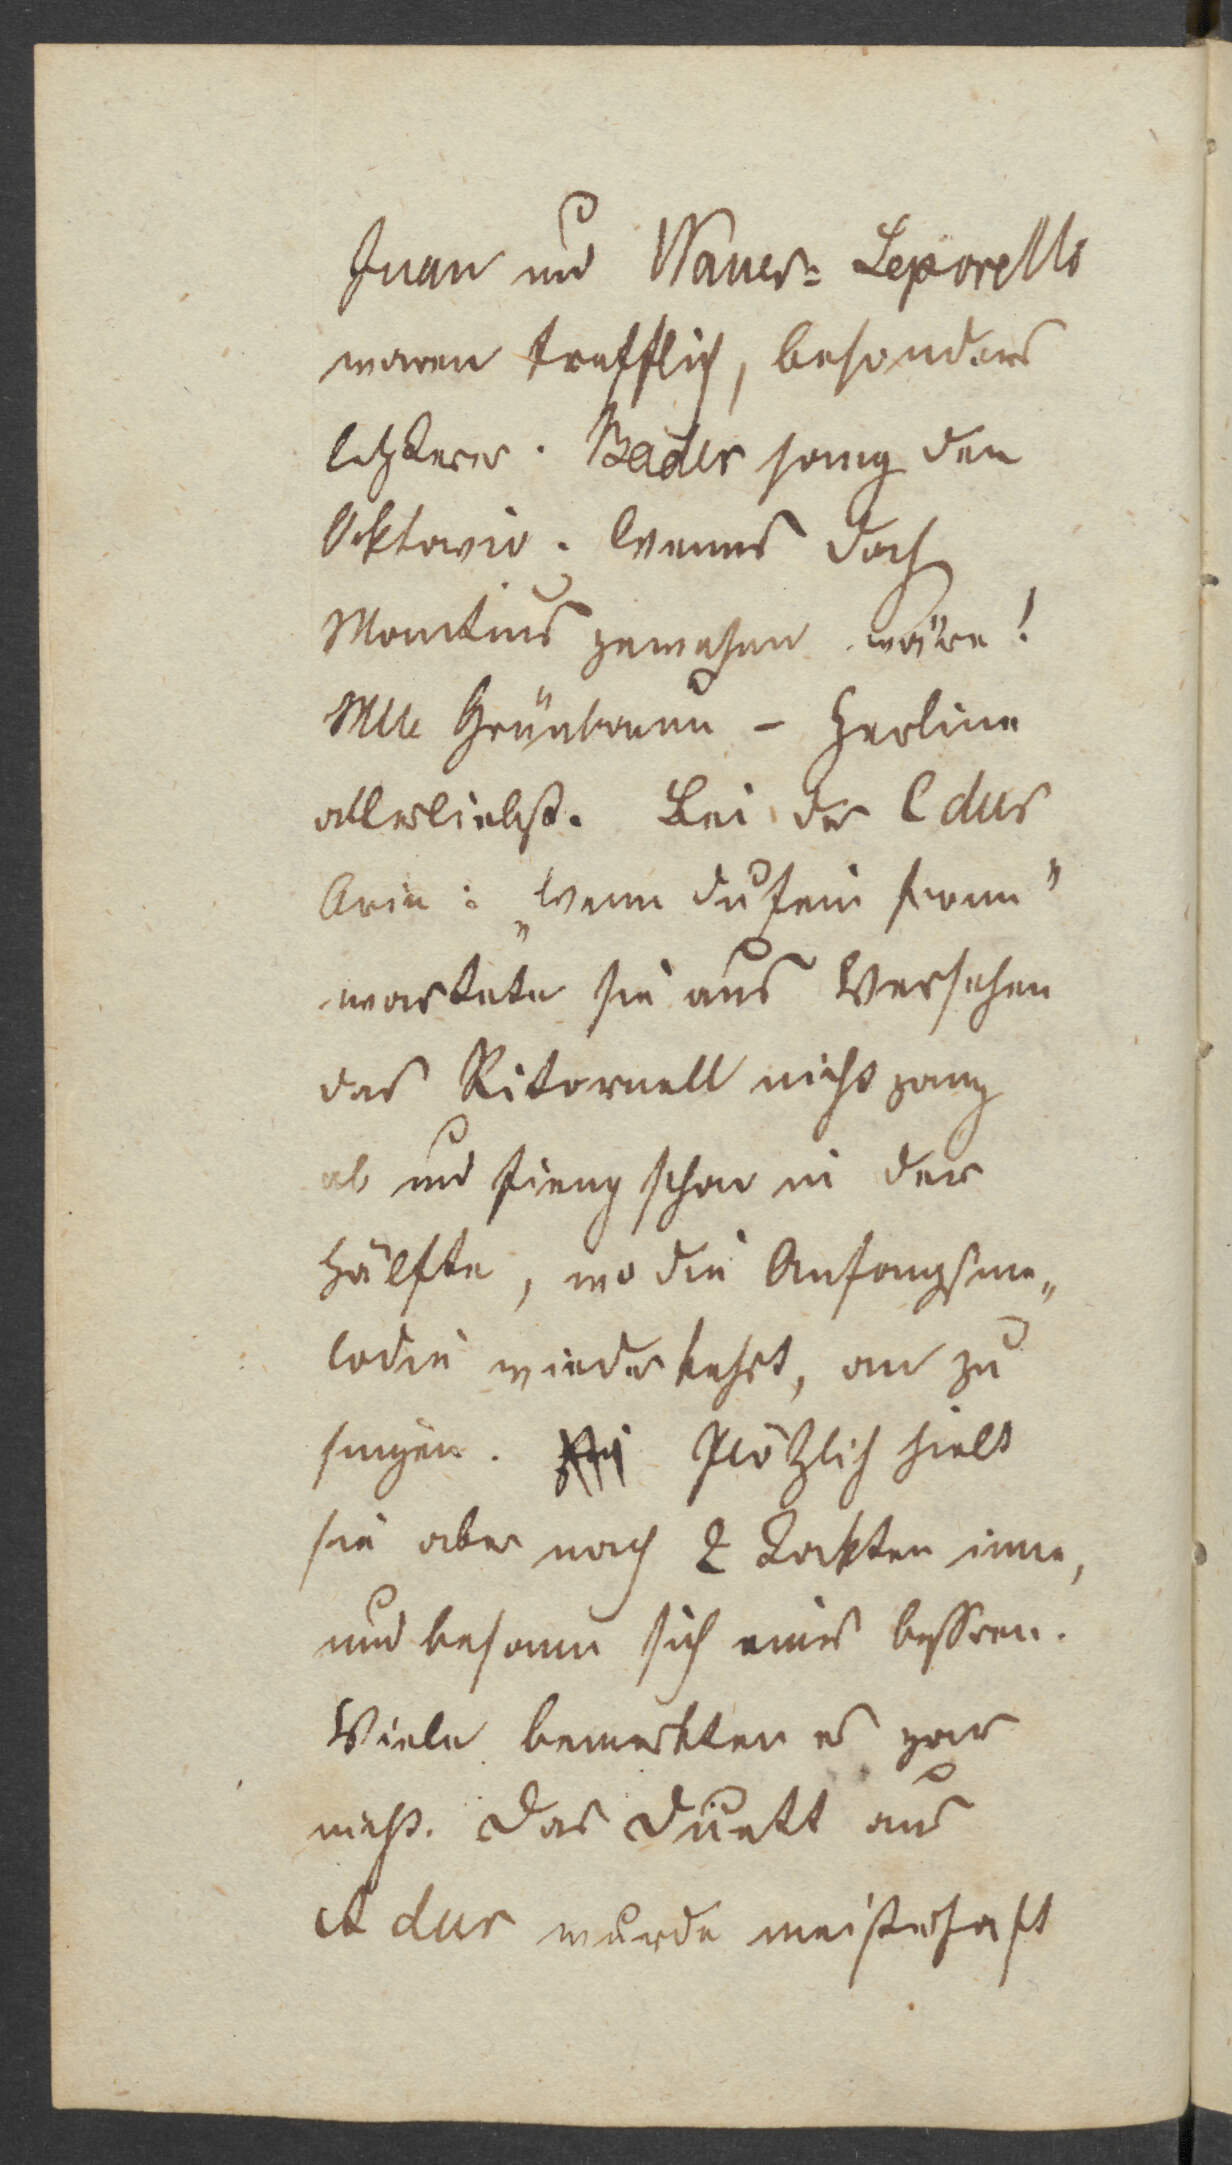 Juan und Wauer= Leporello
waren trefflich, besonders
letzterer. Bader sang den
Oktavio. Wenns doch
Mantius gewesen wäre!
Mlle Grünbaum – Zerline
allerliebst. Bei der C dur
Arie: „Wenn du fein fromm"
wartete sie aus Versehen
das Ritornell nicht ganz
ab und fieng schon in der
Hälfte, wo die Anfangsme„
lodie wiederkehrt, an zu
singen. Plötzlich hielt
sie aber nach 2 Takten inne,
und besann sich eines bessren.
Viele bemerkten es gar
nicht. Das Duett aus
A dur wurde meisterhaft